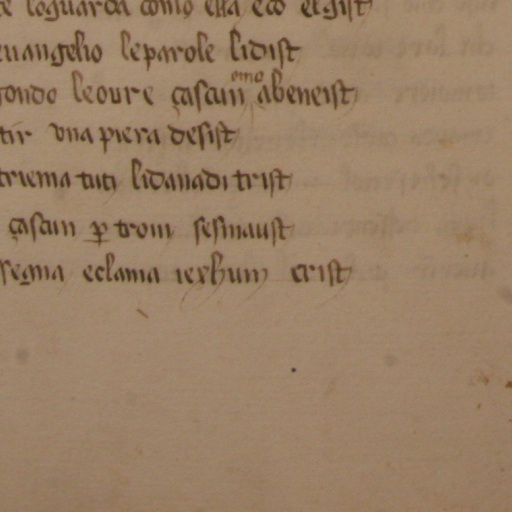 loguarda como ella eco el gist
euangelio leparole lidist
leoure çascun omo abeneist
tir vna piera desist
triema tuti lidanadi trist
çascun ꝑ trom sesmaust
segna eclama iexhum crist